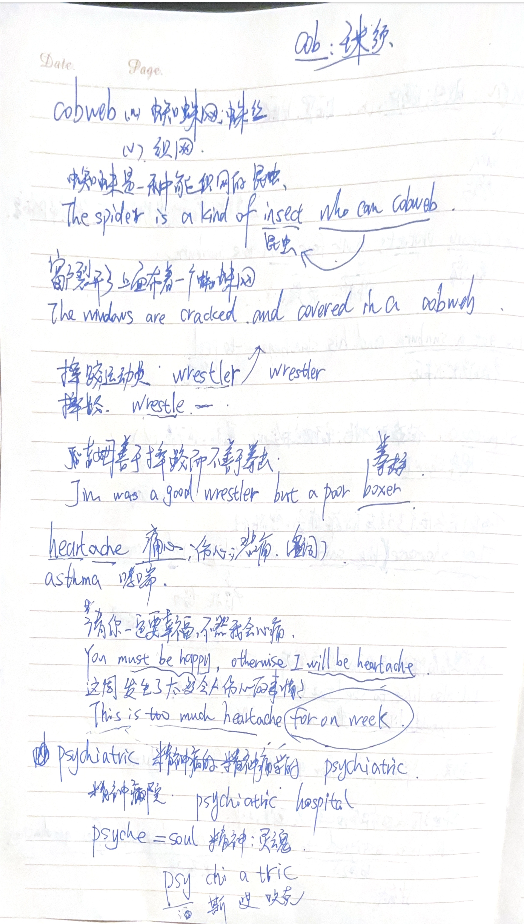 cob: 球须
Date. Page.
cobweb (n) 蜘蛛网; 蛛丝
(v) 织网.
蜘蛛是一种能织网的昆虫.
The spider is a kind of insect who can cobweb.
昆虫
窗户裂开了上面布着一个蜘蛛网
The windows are cracked and covered in a cobweb.
摔跤运动员 wrestler wrestler
摔跤. wrestle 一
善于摔跤而不善于拳击. 拳击手
Jim was a good wrestler but a poor boxer.
heartache 痛心; 伤心; 悲痛.
asthma 哮喘.
请你一定要幸福, 不然我会心痛.
You must be happy, otherwise I will be heartache.
这周发生了太多令人伤心的事情!
This is too much heartache for on week
psychiatric 精神病的 精神病学的 psychiatric.
精神病院. psychiatric hospital
psyche = soul 精神; 灵魂.
psy chi a tric
斯